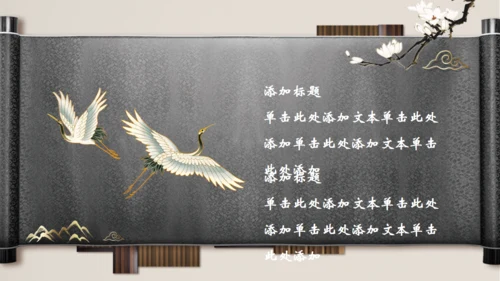 添加标题
单击此处添加文本单击此处
添加单击此处添加文本单击
此处添加
添加标题
单击此处添加文本单击此处
添加单击此处添加文本单击
此处添加